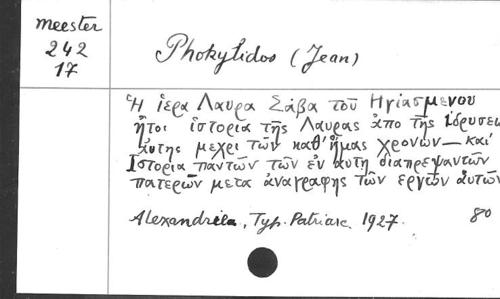 meester
242
17
Phokylidos (Jean)
Ἡ ἱερα Λαυρα Σάβα τοῦ Ηγίασμενου
ἤτοι ἱστορια τῆς Λαυρας ἀπο τῆς ἱδρυσεω
ἀυτης μεχρι τῶν καθ' ἥμας χρονων — και
Ιστορια παντῶν τῶν ἐν ἀυτη διαπρεψαντῶν
πατερῶν μετα ἀναγραφης τῶν εργῶν ἀυτῶν
Alexandrëla, Typ. Patriarc 1927. 80